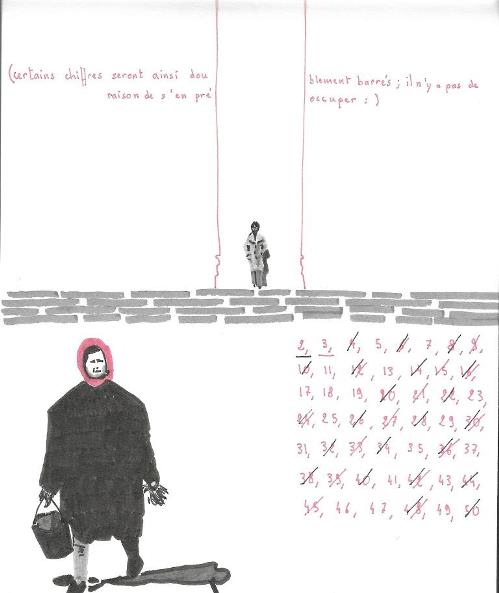 (certains chiffres seront ainsi dou
raison de s'en pré
blement barrés ; il n'y a pas de
occuper : )
2, 3, 4, 5, 6, 7, 8, 9,
10, 11, 12, 13, 14, 15, 16,
17, 18, 19, 20, 21, 22, 23,
24, 25, 26, 27, 28, 29, 30,
31, 32, 33, 34, 35, 36, 37,
38, 39, 40, 41, 42, 43, 44,
45, 46, 47, 48, 49, 50